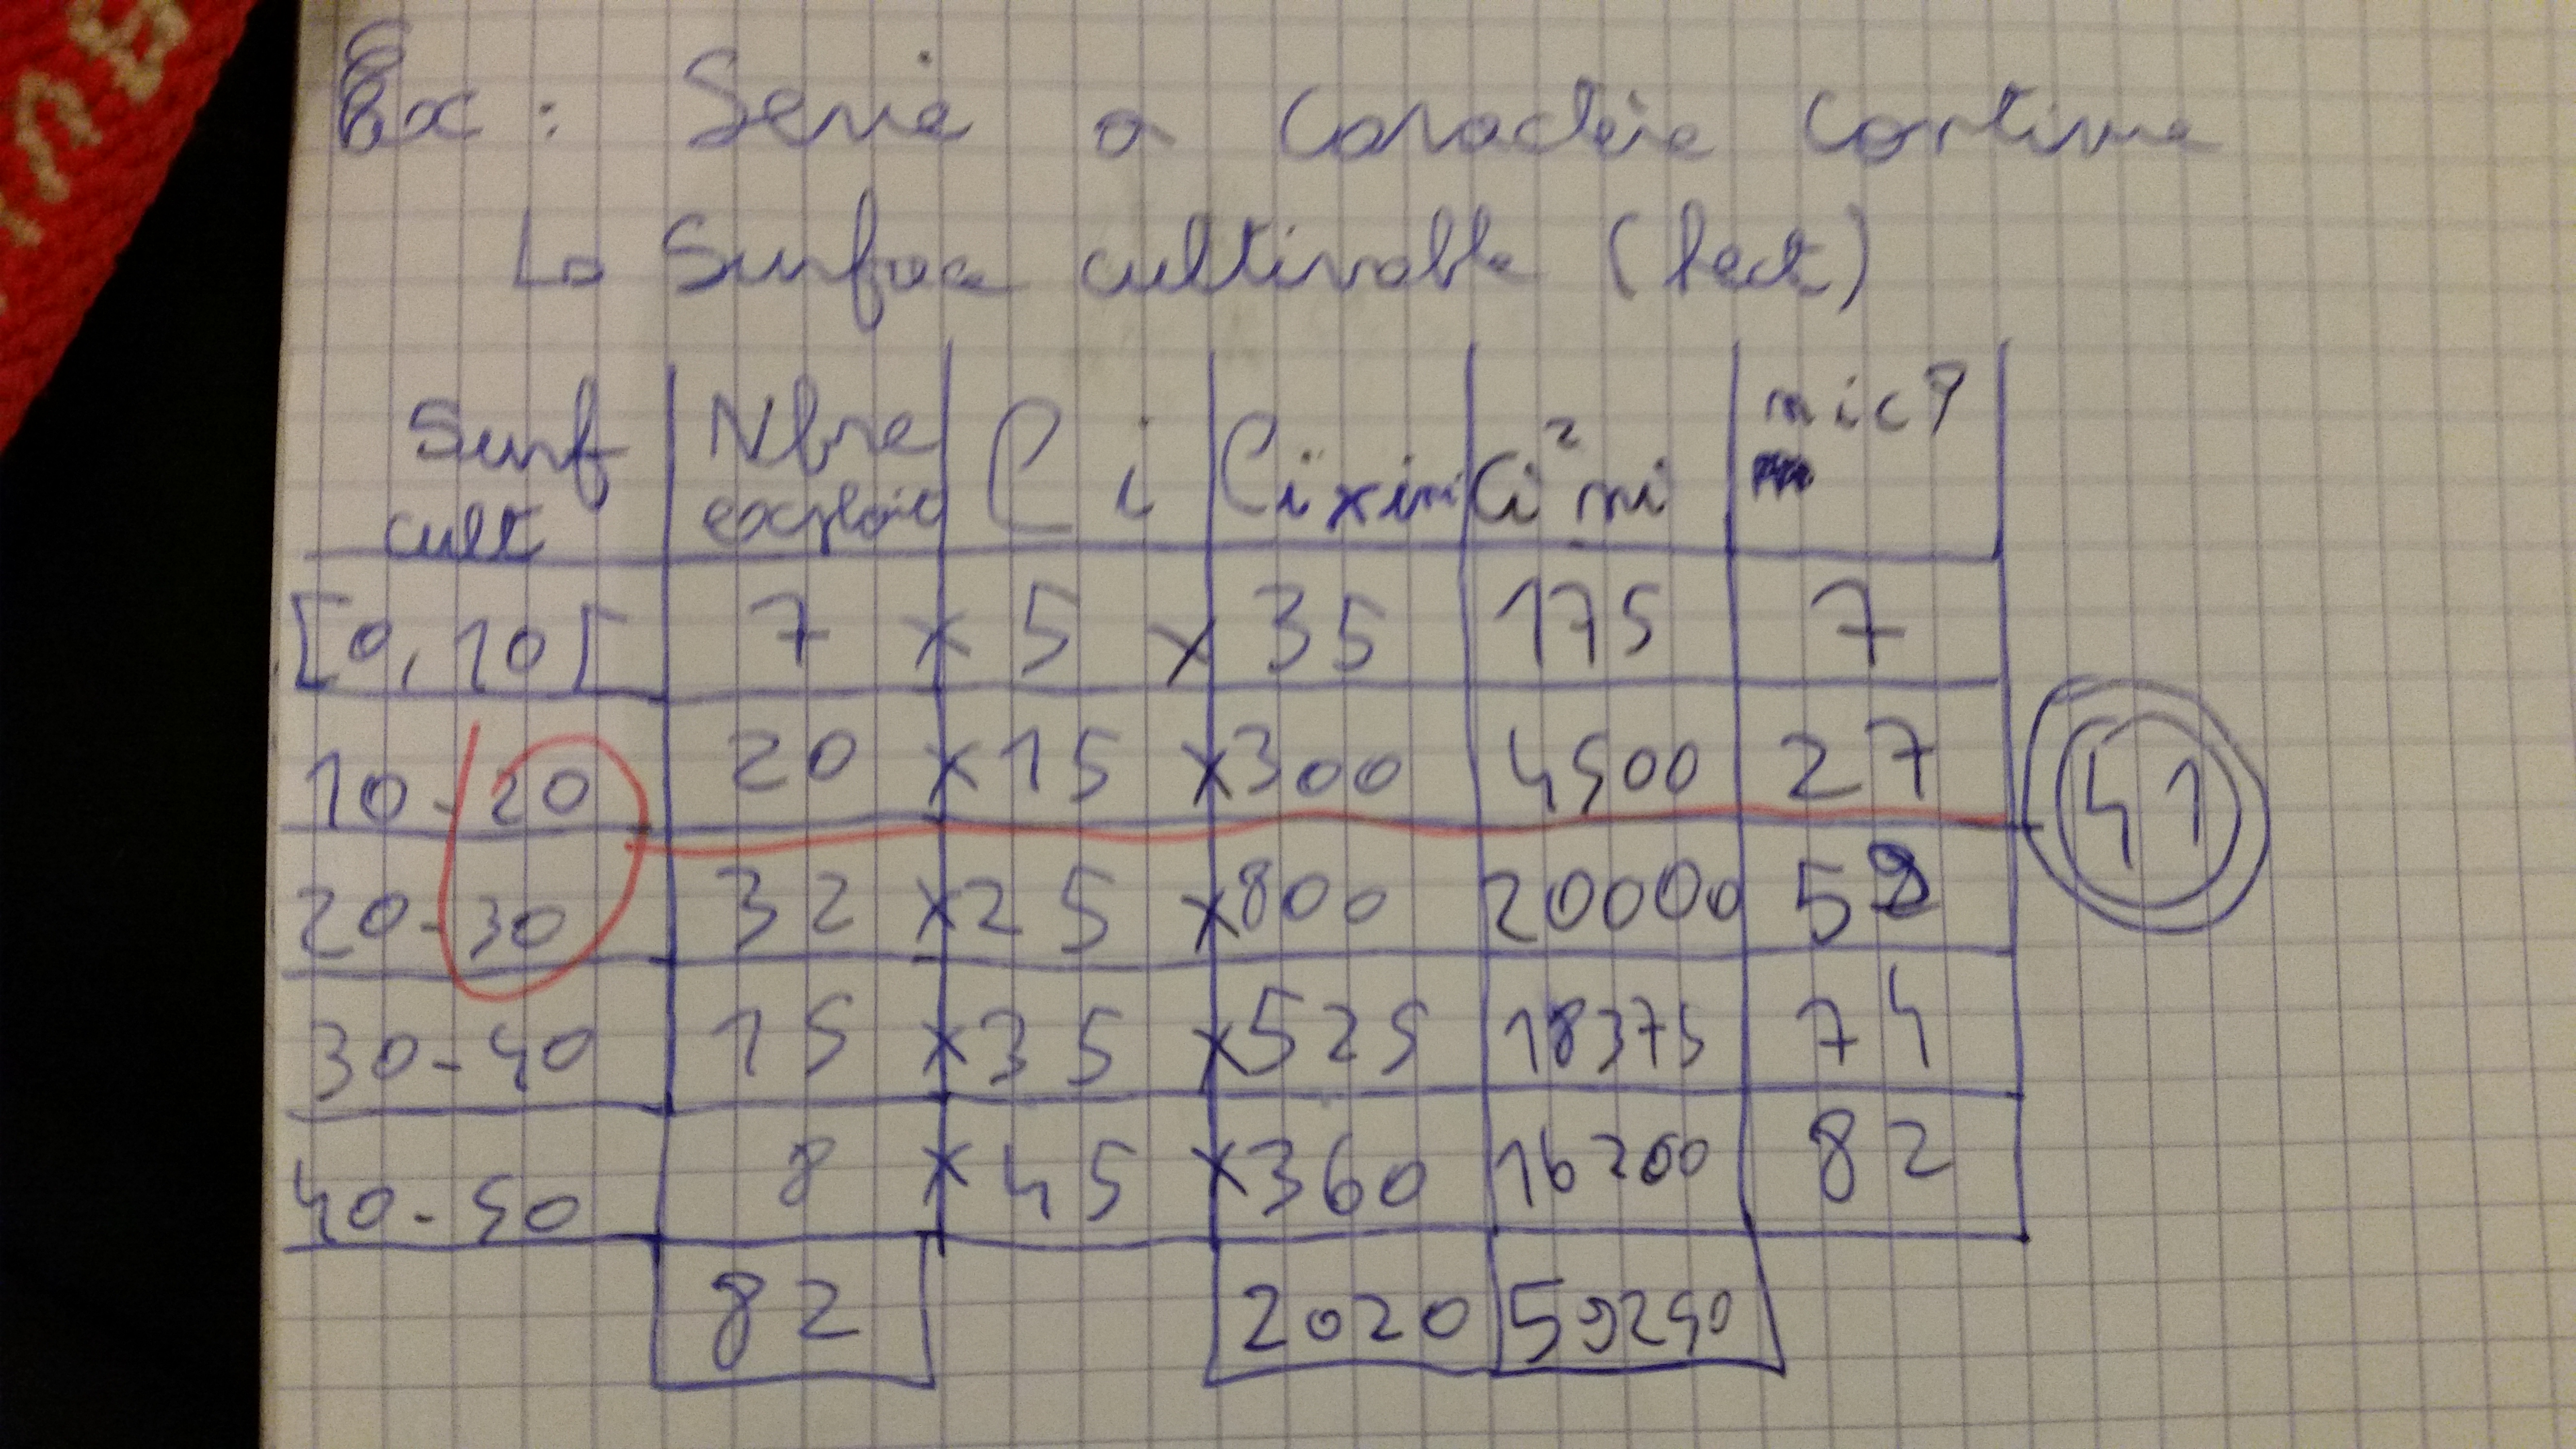 Ex : Serie a caractère continue
Surface cultivable (hect)
Surf cult Nbre exploit Ci Ci x ni Ci² ni nic↑
[0, 10[ 7 x 5 x 35 175 7
10 - 20 20 x 15 x 300 4500 27
41
20 - 30 32 x 25 x 800 20000 59
30 - 40 15 x 35 x 525 18375 74
40 - 50 8 x 45 x 360 16200 82
82 2020 59250